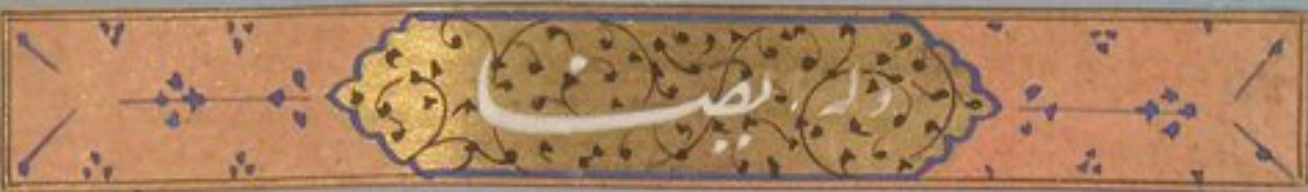 وله ایضا